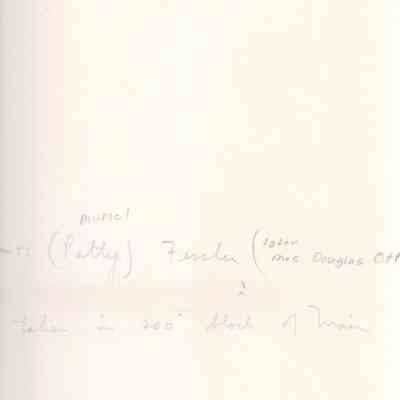 Muriel
(Patty) Fessler (later
Mrs Douglas Ott
taken in 200 block of Main